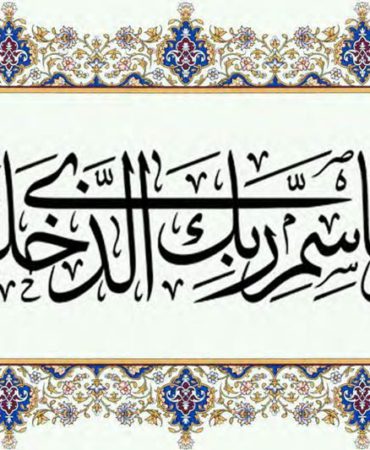 اسْمِ رَبِّكَ الَّذى خَلَ